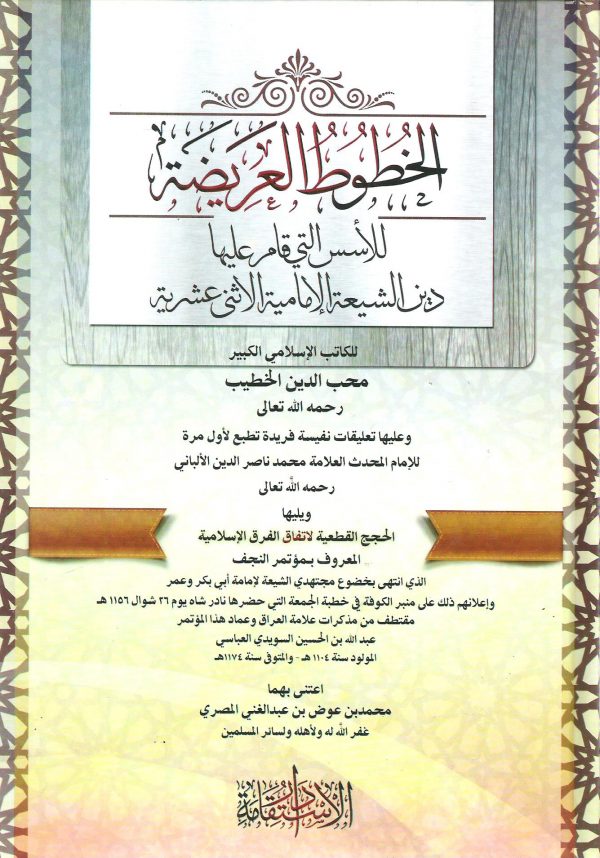 الخُطُوطُ العَرِيضَة
للأسس التي قام عليها
دين الشيعة الإمامية الاثني عشرية
للكاتب الإسلامي الكبير
محب الدين الخطيب
رحمه الله تعالى
وعليها تعليقات نفيسة فريدة تطبع لأول مرة
للإمام المحدث العلامة محمد ناصر الدين الألباني
رحمه الله تعالى
ويليها
الحجج القطعية لاتفاق الفرق الإسلامية
المعروف بـمؤتمر النجف
الذي انتهى بخضوع مجتهدي الشيعة لإمامة أبي بكر وعمر
وإعلانهم ذلك على منبر الكوفة في خطبة الجمعة التي حضرها نادر شاه يوم ٢٦ شوال ١١٥٦ هـ
مقتطف من مذكرات علامة العراق وعماد هذا المؤتمر
عبد الله بن الحسين السويدي العباسي
المولود سنة ١١٠٤ هـ - والمتوفى سنة ١١٧٤هـ
اعتنى بهما
محمدبن عوض بن عبدالغني المصري
غفر الله له ولأهله ولسائر المسلمين
دار الاستقامة